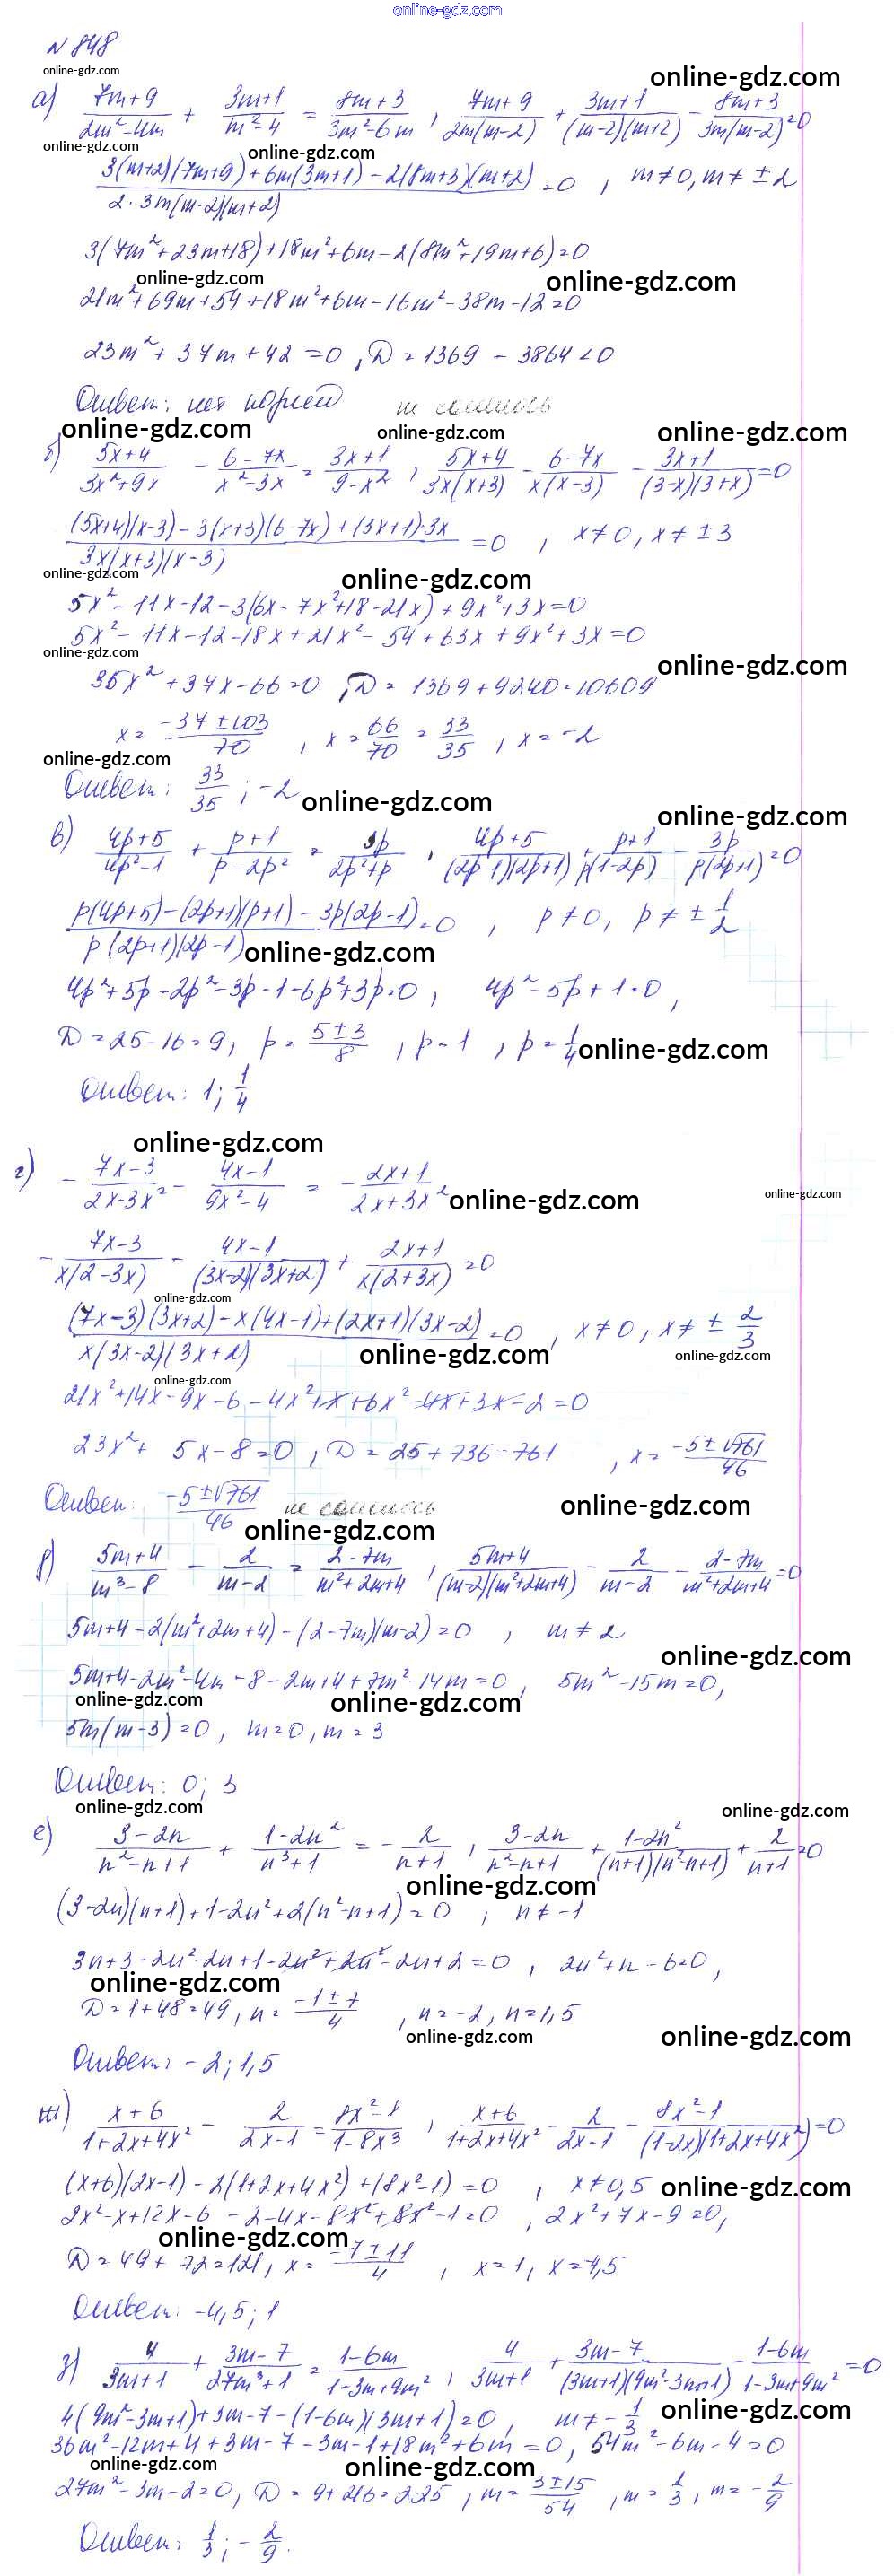 online-gdz.com
N 848
online-gdz.com
online-gdz.com
а) (7m+9)/(2m²-4m) + (3m+1)/(m²-4) = (8m+3)/(3m²-6m), (7m+9)/(2m(m-2)) + (3m+1)/((m-2)(m+2)) - (8m+3)/(3m(m-2)) = 0
online-gdz.com
online-gdz.com
(3(m+2)(7m+9)+6m(3m+1)-2(8m+3)(m+2))/(2·3m(m-2)(m+2)) = 0, m≠0, m≠±2
3(7m²+23m+18)+18m²+6m-2(8m²+19m+6)=0
online-gdz.com
online-gdz.com
21m²+69m+54+18m²+6m-16m²-38m-12=0
23m²+37m+42=0, D=1369-3864<0
Ответ: нет корней не сошлось
online-gdz.com
online-gdz.com
online-gdz.com
б) (5x+4)/(3x²+9x) - (6-7x)/(x²-3x) = (3x+1)/(9-x²), (5x+4)/(3x(x+3)) - (6-7x)/(x(x-3)) - (3x+1)/((3-x)(3+x)) = 0
((5x+4)(x-3)-3(x+3)(6-7x)+(3x+1)·3x)/(3x(x+3)(x-3)) = 0, x≠0, x≠±3
online-gdz.com
online-gdz.com
5x²-11x-12-3(6x-7x²+18-21x)+9x²+3x=0
5x²-11x-12-18x+21x²-54+63x+9x²+3x=0
online-gdz.com
online-gdz.com
35x²+37x-66=0, D=1369+9240=10609
x=(-37±103)/70, x=66/70=33/35, x=-2
online-gdz.com
Ответ: 33/35; -2
online-gdz.com
online-gdz.com
в) (4p+5)/(4p²-1) + (p+1)/(p-2p²) = 3p/(2p²+p), (4p+5)/((2p-1)(2p+1)) + (p+1)/(p(1-2p)) - 3p/(p(2p+1)) = 0
(p(4p+5)-(2p+1)(p+1)-3p(2p-1))/(p(2p+1)(2p-1)) = 0, p≠0, p≠±1/2
online-gdz.com
4p²+5p-2p²-3p-1-6p²+3p=0, 4p²-5p+1=0,
D=25-16=9, p=(5±3)/8, p=1, p=1/4
online-gdz.com
Ответ: 1; 1/4
online-gdz.com
г) -(7x-3)/(2x-3x²) - (4x-1)/(9x²-4) = -(2x+1)/(2x+3x²)
online-gdz.com
online-gdz.com
-(7x-3)/(x(2-3x)) - (4x-1)/((3x-2)(3x+2)) + (2x+1)/(x(2+3x)) = 0
online-gdz.com
((7x-3)(3x+2)-x(4x-1)+(2x+1)(3x-2))/(x(3x-2)(3x+2)) = 0, x≠0, x≠±2/3
online-gdz.com
online-gdz.com
online-gdz.com
21x²+14x-9x-6-4x²+x+6x²-4x+3x-2=0
23x²+5x-8=0, D=25+736=761, x=(-5±√761)/46
Ответ: (-5±√761)/46 не сошлось
online-gdz.com
online-gdz.com
д) (5m+4)/(m³-8) - 2/(m-2) = (2-7m)/(m²+2m+4), (5m+4)/((m-2)(m²+2m+4)) - 2/(m-2) - (2-7m)/(m²+2m+4) = 0
5m+4-2(m²+2m+4)-(2-7m)(m-2)=0, m≠2
online-gdz.com
5m+4-2m²-4m-8-2m+4+7m²-14m=0, 5m²-15m=0,
online-gdz.com
online-gdz.com
5m(m-3)=0, m=0, m=3
Ответ: 0; 3
online-gdz.com
online-gdz.com
е) (3-2n)/(n²-n+1) + (1-2n²)/(n³+1) = -2/(n+1), (3-2n)/(n²-n+1) + (1-2n²)/((n+1)(n²-n+1)) + 2/(n+1) = 0
online-gdz.com
(3-2n)(n+1)+1-2n²+2(n²-n+1)=0, n≠-1
3n+3-2n²-2n+1-2n²+2n²-2n+2=0, 2n²+n-6=0,
online-gdz.com
D=1+48=49, n=(-1±7)/4, n=-2, n=1,5
online-gdz.com
online-gdz.com
Ответ: -2; 1,5
ж) (x+6)/(1+2x+4x²) - 2/(2x-1) = (8x²-1)/(1-8x³), (x+6)/(1+2x+4x²) - 2/(2x-1) - (8x²-1)/((1-2x)(1+2x+4x²)) = 0
(x+6)(2x-1)-2(1+2x+4x²)+(8x²-1)=0, x≠0,5
online-gdz.com
2x²-x+12x-6-2-4x-8x²+8x²-1=0, 2x²+7x-9=0,
online-gdz.com
D=49+72=121, x=(-7±11)/4, x=1, x=4,5
Ответ: -4,5; 1
з) 4/(3m+1) + (3m-7)/(27m³+1) = (1-6m)/(1-3m+9m²), 4/(3m+1) + (3m-7)/((3m+1)(9m²-3m+1)) - (1-6m)/(1-3m+9m²) = 0
4(9m²-3m+1)+3m-7-(1-6m)(3m+1)=0, m≠-1/3
online-gdz.com
36m²-12m+4+3m-7-3m-1+18m²+6m=0, 54m²-6m-4=0
online-gdz.com
online-gdz.com
27m²-3m-2=0, D=9+216=225, m=(3±15)/54, m=1/3, m=-2/9
Ответ: 1/3; -2/9.